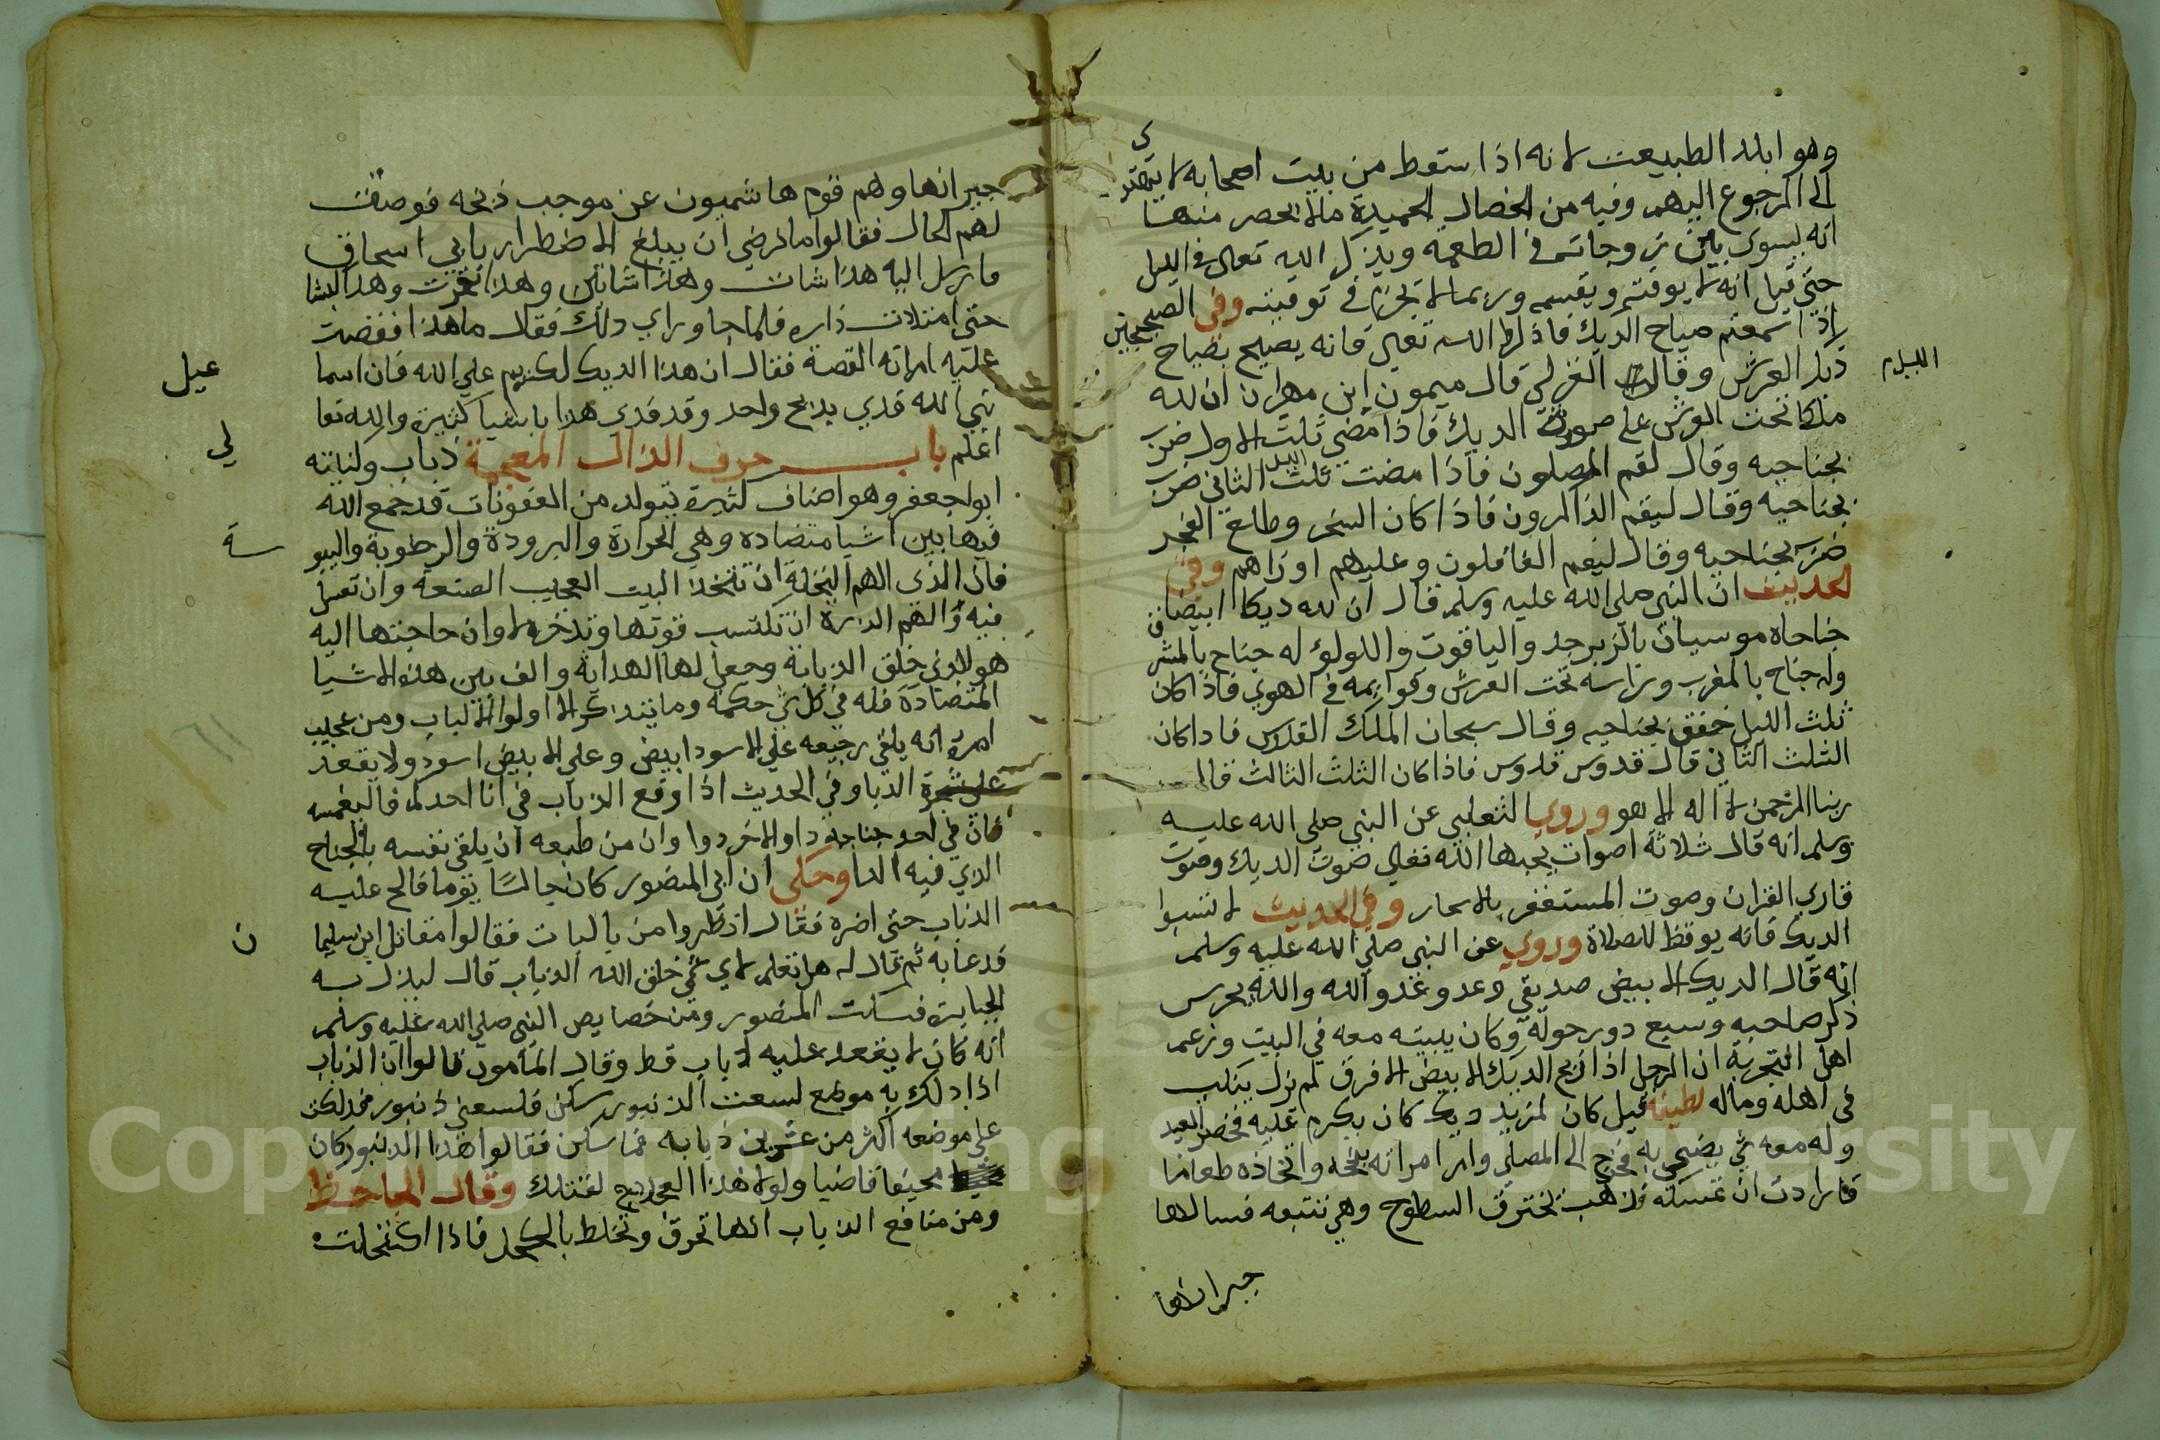 وهو ابله الطبيعت لانه اذا سقط من بيت اصحابه لا يهتدي
الى الرجوع اليهم وفيه من الخصال الحميدة مالا يحصر منها
انه يسوي بين زوجاته في الطعمة ويذكر الله تعالى في الليل
حتى قيل انه لا يوقته ويقسمه وربما لا يخرم في توقيته وفي الصحيحين
اذا سمعتم صياح الديك فاذكروا الله تعالى فانه يصيح بصياح
ديك العرش وقال الغزلي قال ميمون ابن مهران ان لله
ملكا تحت العرش على صورة الديك فاذا مضى ثلث الاول ضرب
الليل
بجناحيه وقال لقم المصلون فاذا مضت ثلث الليل الثاني ضرب
بجناحيه وقال ليقم الذاكرون فاذا كان السحر وطلع الفجر
ضرب بجناحيه وقال ليقم الغافلون وعليهم اوزارهم وفي
الحديث ان النبي صلى الله عليه وسلم قال ان لله ديكا ابيضا
جناحاه موسيان بالزبرجد والياقوت واللولو له جناح بالمشرق
وله جناح بالمغرب وراسه تحت العرش وقوايمه في الهوي فاذا كان
ثلث الليل خفق بجناحيه وقال سبحان الملك القدوس فاذا كان
الثلث الثاني قال قدوس قدوس فاذا كان الثلث الثالث قال
ربنا الرحمن لا اله الا هو وروي الثعلبي عن النبي صلى الله عليه
وسلم انه قال ثلاثة اصوات يحبها الله تعالى صوت الديك وصوت
قاري القران وصوت المستغفر بالاسحار وفي الحديث لا تسبوا
الديك فانه يوقظ للصلاة وروي عن النبي صلى الله عليه وسلم
انه قال الديك الابيض صديقي وعدو عدو الله والله يحرس
دار صاحبه وسبع دور حوله وكان يبيته معه في البيت وزعم
اهل التجربة ان الرجل اذا ذبح الديك الابيض الافرق لم يزل ينكب
في اهله وماله لطيفة قيل كان لمزيد ديك كان يكرم عليه فحضر العيد
وله معه شي يضحي به فخرج الى المصلى وامر امراته بذبحه واتخاذه طعاما
فارادت ان تمسكه فذهب يخترق السطوح وهي تتبعه فسالها
جيرانها
جيرانها وهم قوم هاشميون عن موجب ذبحه فوصفت
لهم الحال فقالوا ما نرضي ان يبلغ الاضطرار بابي اسحاق
فارسل اليه هذا شات وهذا شاتين وهذا بقرت وهذا كبشا
حتى امتلات داره فلما جا وراي ذلك فقال ما هذا فقصت
عليه امراته القصة فقال ان هذا الديك لكريم على الله فان اسما
عيل
نبي الله فدي بذبح واحد وقد فدي هذا باشيا كثيرة والله تعا
لي
اعلم باب حرف الذال المعجمة ذباب وكنيته
ابو جعفر وهو اصناف كثيرة يتولد من العفونات قد جمع الله
فيها بين اشيا متضاده وهي الحرارة والبرودة والرطوبة واليبو
سة
فان الذي الهم النحلة ان تتخذ البيت العجيب الصنعة وان تعسل
فيه والهم الذرة ان تكتسب قوتها وتدخره لاوان حاجتها اليه
هو الذي خلق الذبابة وجعل لها الهداية والف بين هذه الاشيا
المتضادة فله في كل شي حكمة وما يتذاكر الا اولوا الالباب ومن عجيب
امره انه يلقي رجيعه على الاسود ابيض وعلى الابيض اسود ولا يقعد
على شجرة الدبا وفي الحديث اذا وقع الذباب في انا احدكم فاليغمسه
فان في احد جناحيه دا والاخر دوا وان من طبعه ان يلقي نفسه بالجناح
الذي فيه الدا وحكي ان ابي المنصور كان جالسا يوما فالح عليه
الذباب حتى اضره فقال انظروا من بالباب فقالوا مقاتل ابن سليما
ن
فدعا به ثم قال له هل تعلم لاي شي خلق الله الذباب قال ليذل به
الجبابرة فسكت المنصور ومن خصايص النبي صلى الله عليه وسلم
انه كان لا يقعد عليه ذباب قط وقال المامون قالوا ان الذباب
اذا دلك به موضع لسعت الزنبور سكن فلسعني زنبور فدلكت
على موضعه اكثر من عشرين ذبابه فما سكن فقالوا هذا الزنبور كان
حيفا قاضيا ولولا هذا العلاج لقتلك وقال الجاحظ
ومن منافع الذباب انها تحرق وتخلط بالكحل فاذا اكتحلت
Copyright © King Saud University